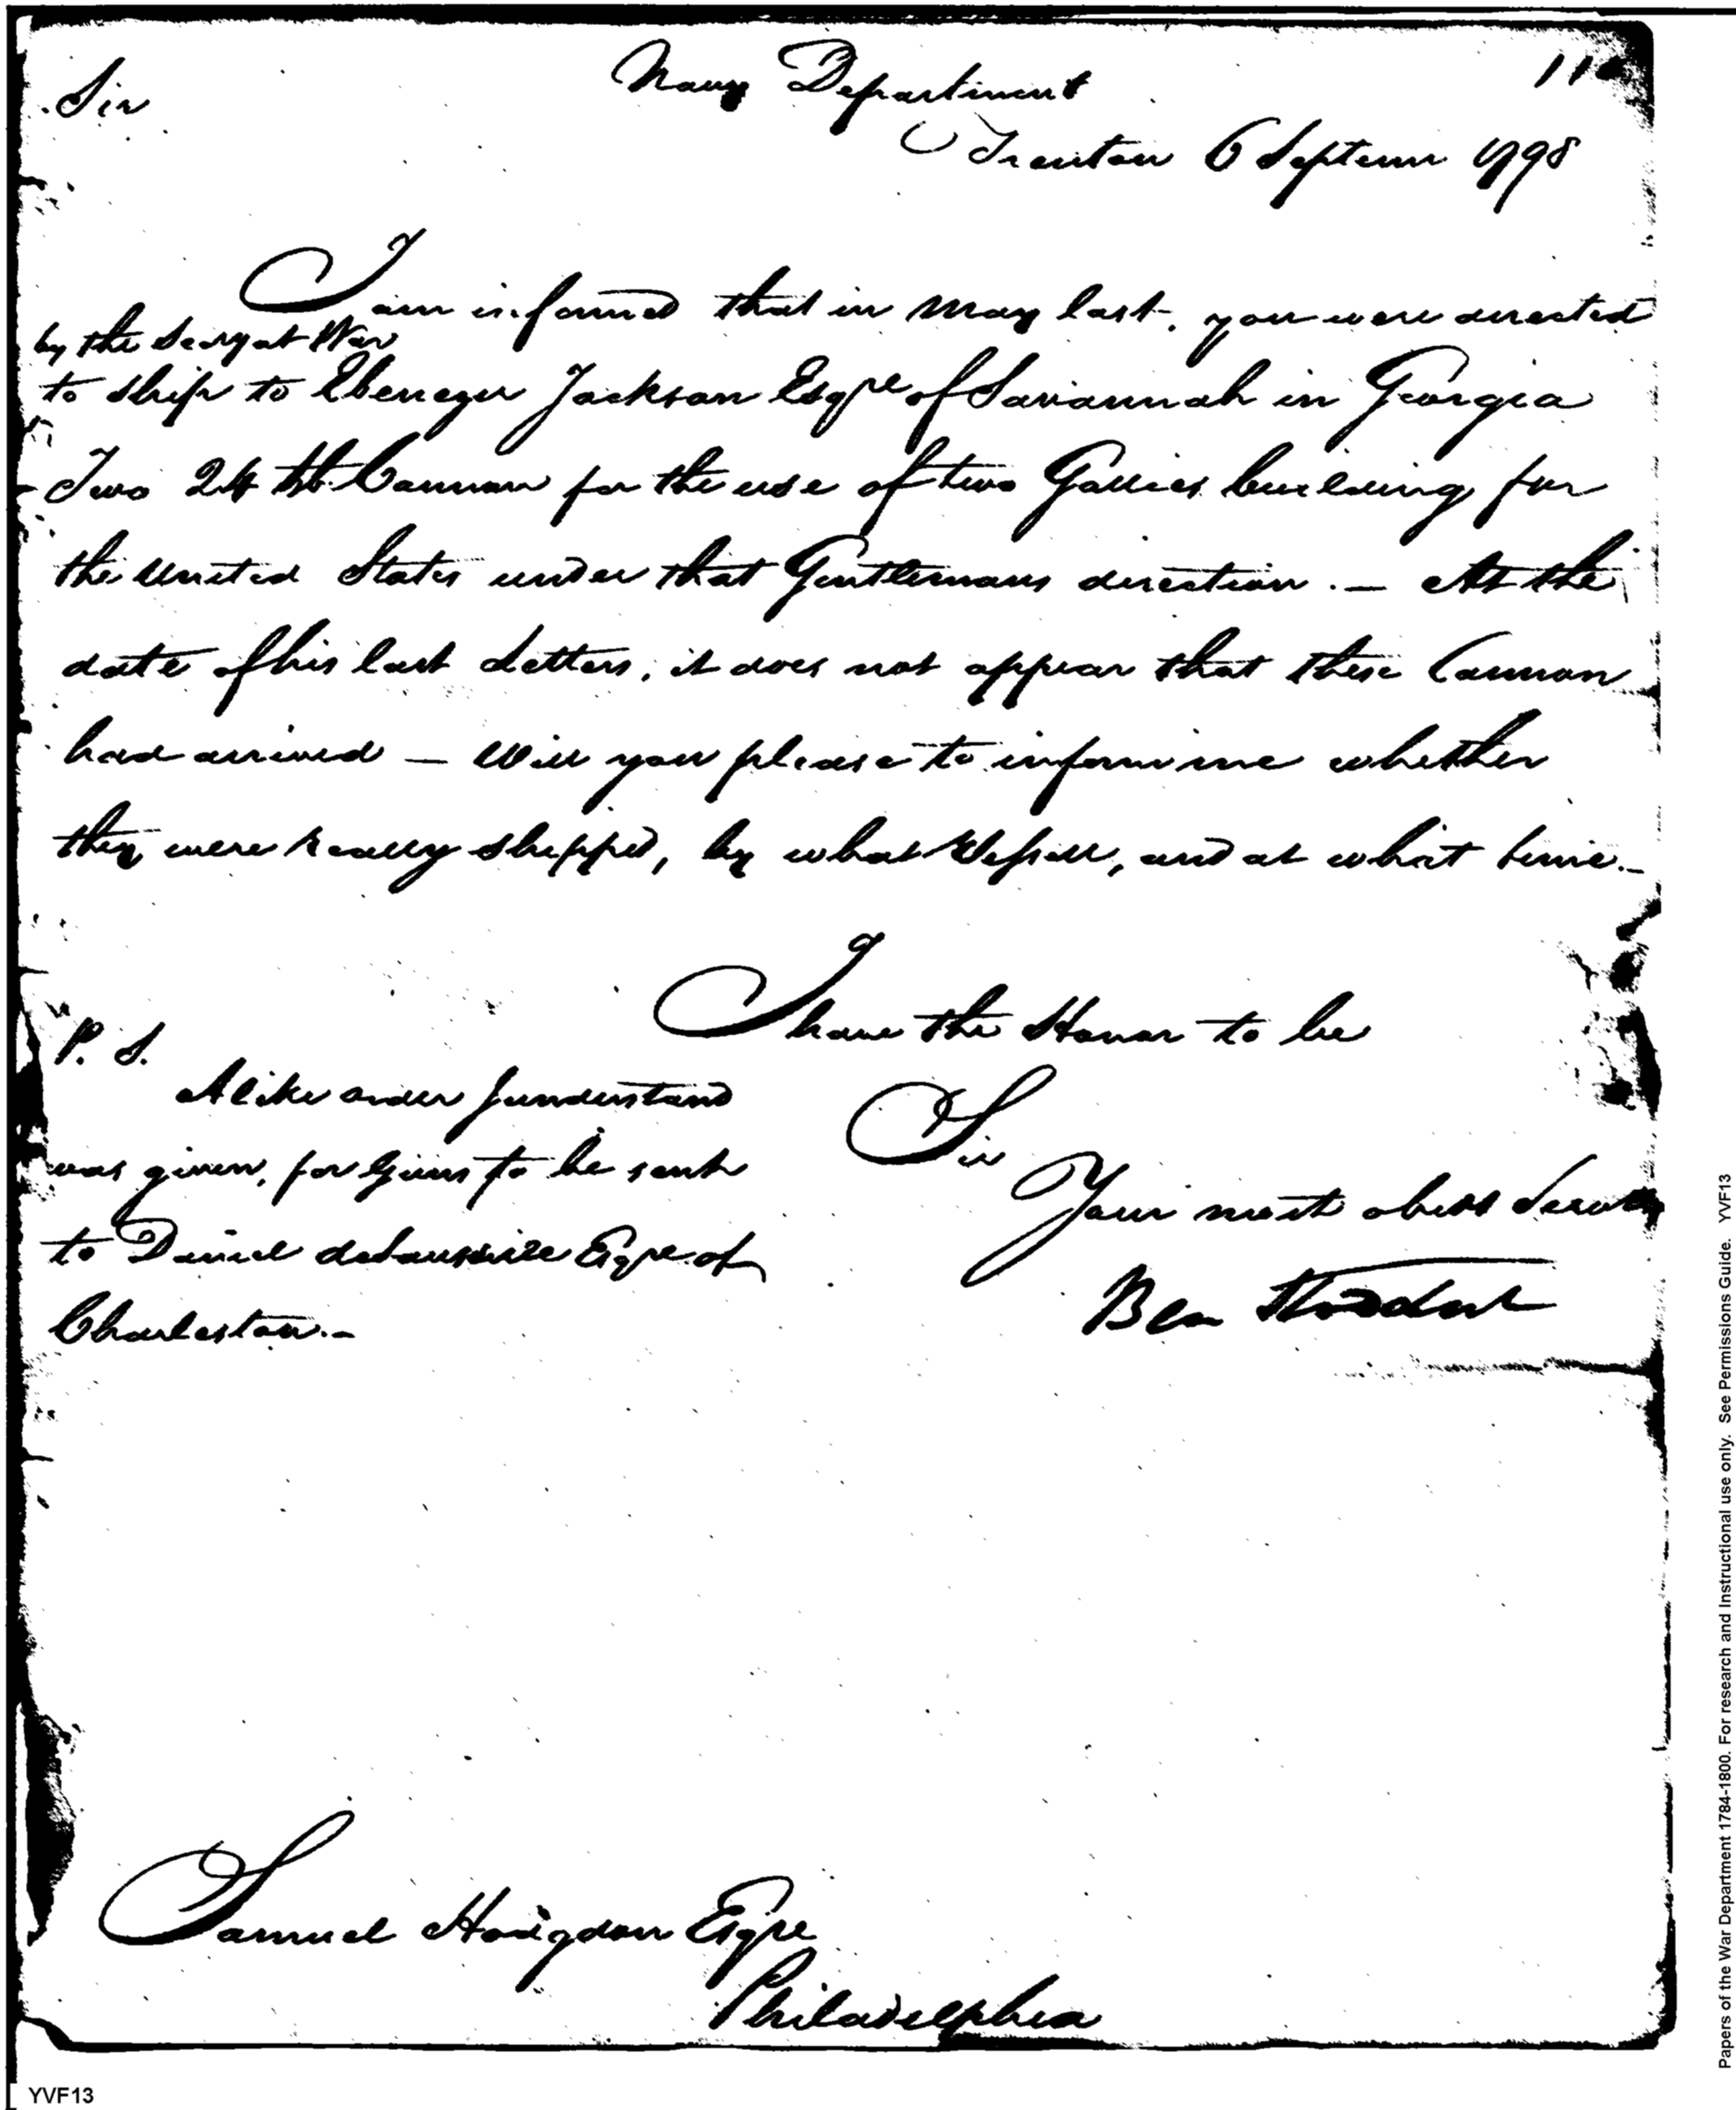 110
Navy Department
Sir
Trenton 6 Septemr 1798
I am informed that in May last, you were directed
by the Secy at War
to ship to Ebenezer Jackson Esqre of Savannah in Georgia
Two 24 lb Cannon for the use of two Gallies building for
the United States under that Gentlemans direction. — At the
date of his last Letters, it does not appear that these Cannon
had arrived — Will you please to inform me whether
they were really shipped, by what Vessell, and at what time. —
I have the Honor to be
Sir
Your most obedt Servt
Ben Stoddert
P. S.
A like order I understand
was given, for Guns to be sent
to Daniel Esqre of
Charleston. —
Samuel Hodgdon Esqre
Philadelphia
YVF13
Papers of the War Department 1784-1800. For research and Instructional use only. See Permissions Guide. YVF13